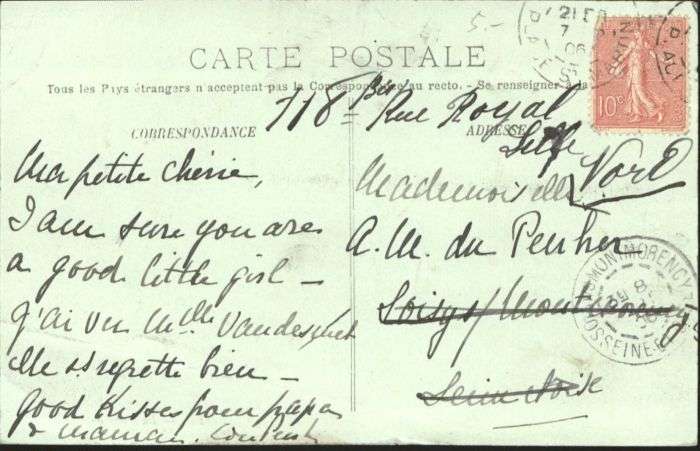 CARTE POSTALE
Tous les Pays étrangers n acceptent pas la Correspondance au recto. - Se renseigner à la
CORRESPONDANCE
Ma petite Chérie,
I am sure you are
a good little girl -
j'ai vu Mlle
elle regrette bien -
Good Kisses from papa
& maman.
ADRESSE
118 bis Rue Royal
Lille
Nord
Mademoiselle
A. M. du Penher
Soisy s/ Montmorency
Seine et Oise
10c
MONTMORENCY
OISE